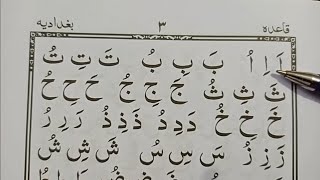 قاعده ٣ بغداديه
اَ اِ اُ بَ بِ بُ تَ تِ تُ
ثَ ثِ ثُ جَ جِ جُ حَ حِ حُ
خَ خِ خُ دَ دِ دُ ذَ ذِ ذُ رَ رِ رُ
زَ زِ زُ سَ سِ سُ شَ شِ شُ